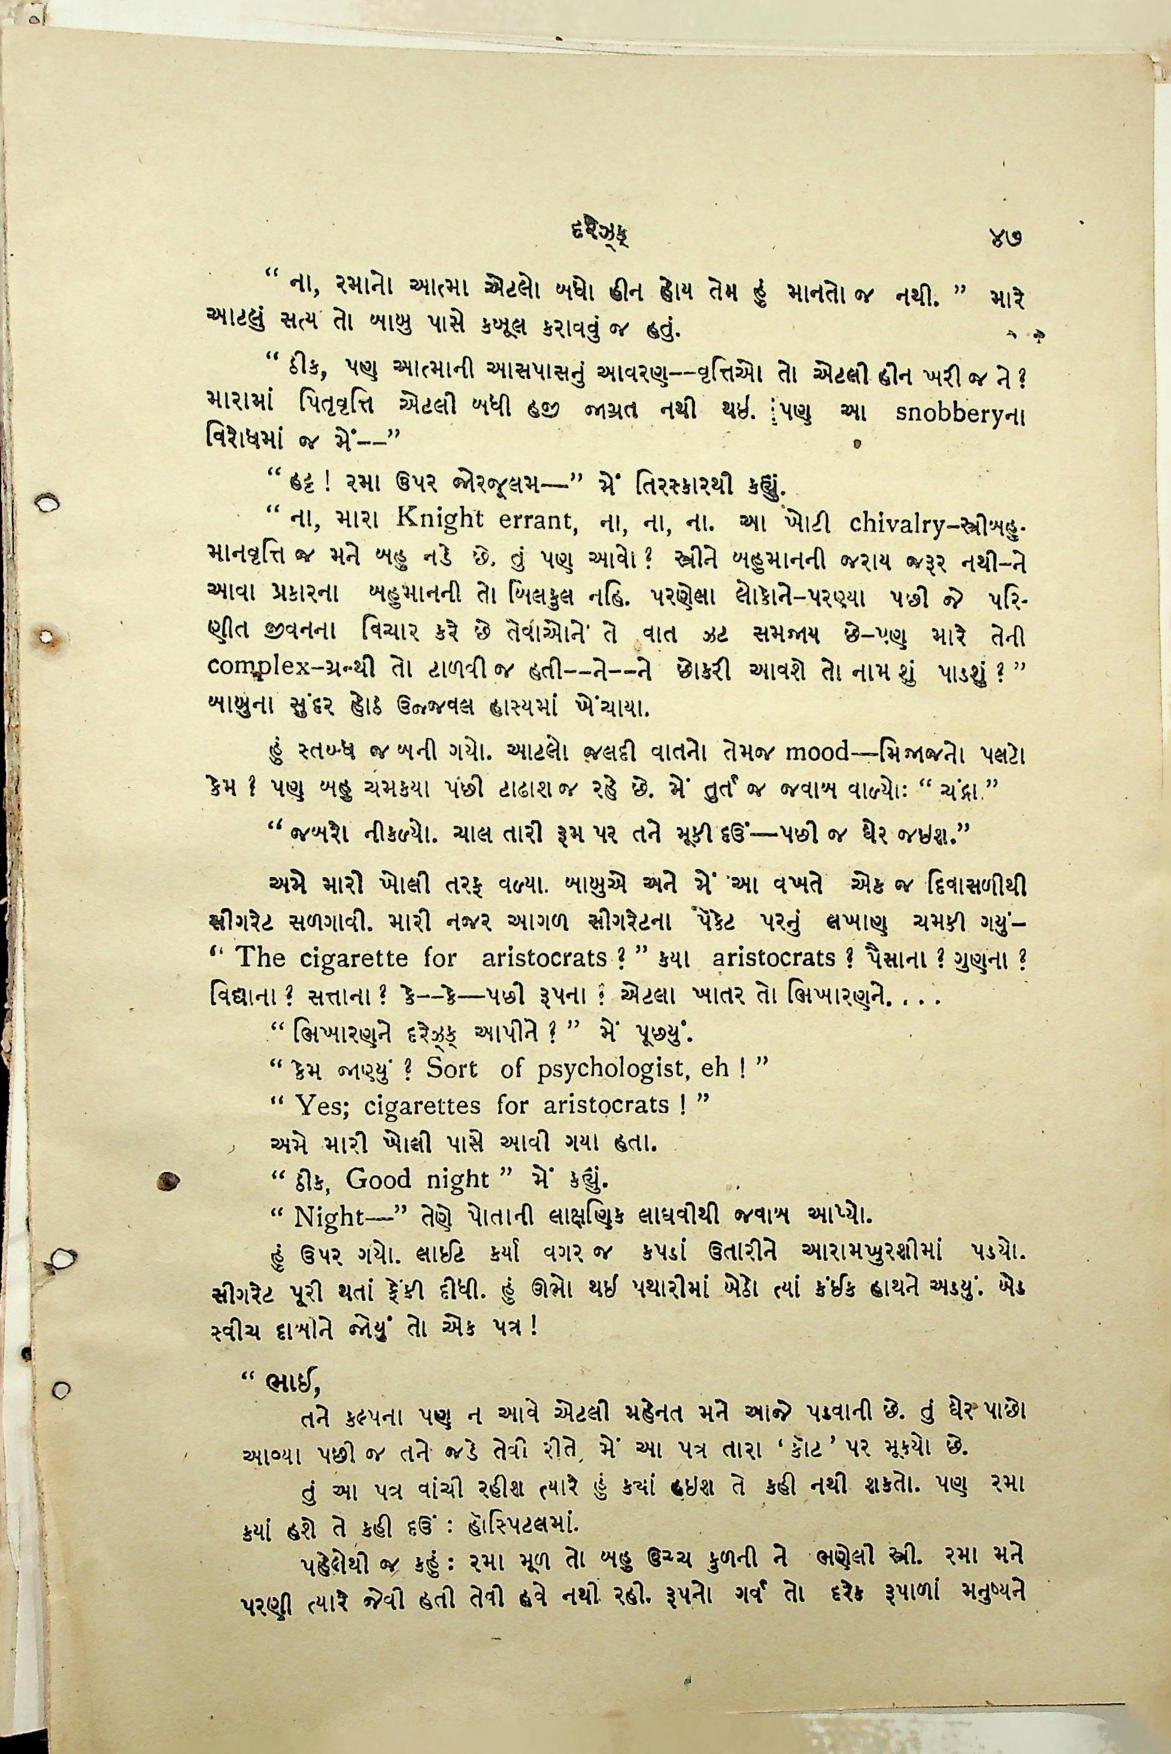 દરેઝ્ક્
૪૭
“ ના, રમાનો આત્મા એટલો બધો હીન હોય તેમ હું માનતો જ નથી. ” મારે
આટલું સત્ય તો બાબુ પાસે કબૂલ કરાવવું જ હતું.
“ ઠીક, પણ આત્માની આસપાસનું આવરણ--વૃત્તિઓ તો એટલી હીન ખરી જ ને ?
મારામાં પિતૃવૃત્તિ એટલી બધી હજી જાગ્રત નથી થઇ. પણ આ snobberyના
વિરોધમાં જ મેં--”
“ હટ્ટ ! રમા ઉપર જોરજૂલમ—” મેં તિરસ્કારથી કહ્યું.
“ ના, મારા Knight errant, ના, ના, ના. આ ખોટી chivalry–સ્ત્રીબહુ-
માનવૃત્તિ જ મને બહુ નડે છે. તું પણ આવો ? સ્ત્રીને બહુમાનની જરાય જરૂર નથી–ને
આવા પ્રકારના બહુમાનની તો બિલકુલ નહિ. પરણેલા લોકોને–પરણ્યા પછી જે પરિ-
ણીત જીવનના વિચાર કરે છે તેવાઓને તે વાત ઝટ સમજાય છે–પણ મારે તેની
complex–ગ્રન્થી તો ટાળવી જ હતી--ને--ને છોકરી આવશે તો નામ શું પાડશું ? ”
બાબુના સુંદર હોઠ ઉજ્જવલ હાસ્યમાં ખેંચાયા.
હું સ્તબ્ધ જ બની ગયો. આટલો જલદી વાતનો તેમજ mood—મિજાજનો પલટો
કેમ ? પણ બહુ ચમકયા પછી ટાઢાશ જ રહે છે. મેં તુર્ત જ જવાબ વાળ્યો: “ ચંદ્રા ”
“ જબરો નીકળ્યો. ચાલ તારી રૂમ પર તને મૂકી દઉં—પછી જ ઘેર જઇશ.”
અમે મારી ખોલી તરફ વળ્યા. બાબુએ અને મેં આ વખતે એક જ દિવાસળીથી
સીગરેટ સળગાવી. મારી નજર આગળ સીગરેટના પેકેટ પરનું લખાણ ચમકી ગયું–
“ The cigarette for aristocrats ? ” કયા aristocrats ? પૈસાના ? ગુણના ?
વિદ્યાના ? સત્તાના ? કે--કે—પછી રૂપના ? એટલા ખાતર તો ભિખારણને. . . .
“ ભિખારણને દરેઝ્ક્ આપીને ? ” મેં પૂછયું.
“ કેમ જાણ્યું ? Sort of psychologist, eh ! ”
“ Yes; cigarettes for aristocrats ! ”
અમે મારી ખોલી પાસે આવી ગયા હતા.
“ ઠીક, Good night ” મેં કહ્યું.
“ Night—” તેણે પોતાની લાક્ષણિક લાઘવીથી જવાબ આપ્યો.
હું ઉપર ગયો. લાઈટ કર્યા વગર જ કપડાં ઉતારીને આરામખુરશીમાં પડયો.
સીગરેટ પૂરી થતાં ફેંકી દીધી. હું ઊભો થઇ પથારીમાં બેઠો ત્યાં કંઈક હાથને અડયું. બેડ
સ્વીચ દાબીને જોયું તો એક પત્ર !
“ ભાઈ,
તને કલ્પના પણ ન આવે એટલી મહેનત મને આજે પડવાની છે. તું ઘેર પાછો
આવ્યા પછી જ તને જડે તેવી રીતે મેં આ પત્ર તારા ‘ કૉટ ’ પર મૂકયો છે.
તું આ પત્ર વાંચી રહીશ ત્યારે હું કયાં હઇશ તે કહી નથી શકતો. પણ રમા
કયાં હશે તે કહી દઉં : હૉસ્પિટલમાં.
પહેલેથી જ કહું : રમા મૂળ તો બહુ ઉચ્ચ કુળની ને ભણેલી સ્ત્રી. રમા મને
પરણી ત્યારે જેવી હતી તેવી હવે નથી રહી. રૂપનો ગર્વ તો દરેક રૂપાળાં મનુષ્યને